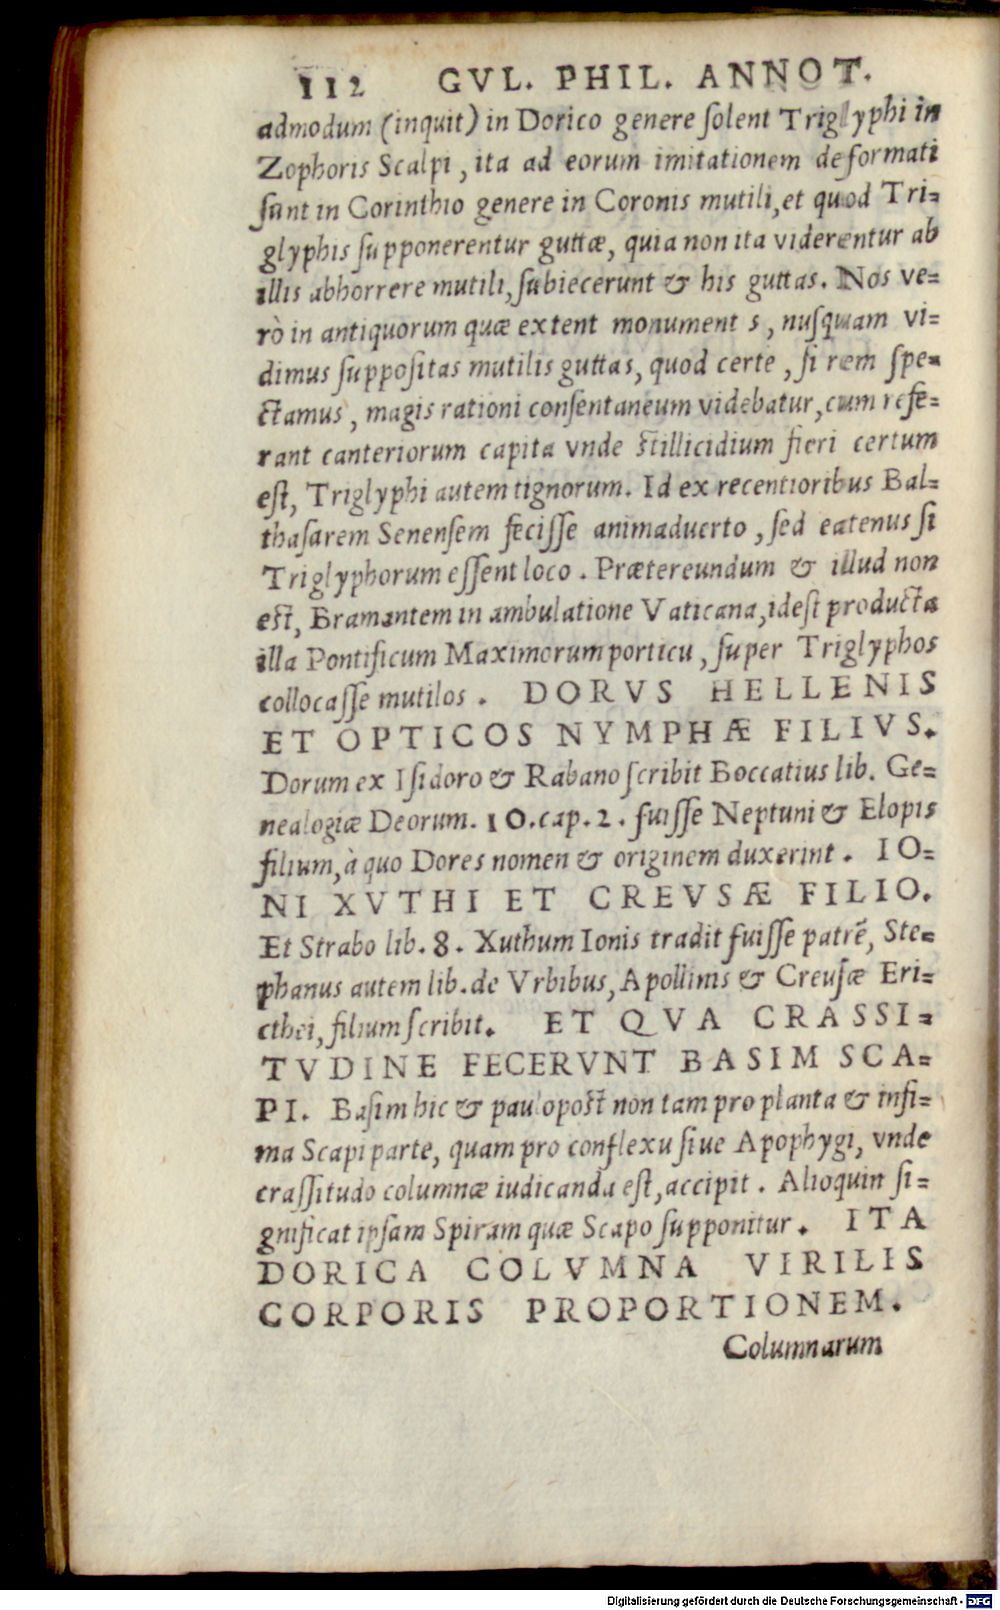 112 GVL. PHIL. ANNOT.
admodum (inquit) in Dorico genere ſolent Triglyphi in
Zophoris Scalpi, ita ad eorum imitationem deformati
ſunt in Corinthio genere in Coronis mutili, et quod Tri=
glyphis ſupponerentur guttæ, quia non ita viderentur ab
illis abhorrere mutili, ſubiecerunt & his guttas. Nos ve=
rò in antiquorum quæ extent monument s, nuſquam vi=
dimus ſuppoſitas mutilis guttas, quod certe, ſi rem ſpe=
ctamus, magis rationi conſentaneum videbatur, cum refe=
rant canteriorum capita vnde ſtillicidium fieri certum
eſt, Triglyphi autem tignorum. Id ex recentioribus Bal=
thaſarem Senenſem feciſſe animaduerto, ſed eatenus ſi
Triglyphorum eſſent loco. Prætereundum & illud non
eſt, Bramantem in ambulatione Vaticana, ideſt producta
illa Pontificum Maximorum porticu, ſuper Triglyphos
collocaſſe mutilos. DORVS HELLENIS
ET OPTICOS NYMPHÆ FILIVS.
Dorum ex Iſidoro & Rabano ſcribit Boccatius lib. Ge=
nealogiæ Deorum. 10. cap. 2. fuiſſe Neptuni & Elopis
filium, à quo Dores nomen & originem duxerint. IO=
NI XVTHI ET CREVSÆ FILIO.
Et Strabo lib. 8. Xuthum Ionis tradit fuiſſe patrẽ, Ste=
phanus autem lib. de Vrbibus, Apollinis & Creuſæ Eri=
cthei, filium ſcribit. ET QVA CRASSI=
TVDINE FECERVNT BASIM SCA=
PI. Baſim hic & paulopoſt non tam pro planta & infi=
ma Scapi parte, quam pro conflexu ſiue Apophygi, vnde
craſſitudo columnæ iudicanda eſt, accipit. Alioquin ſi=
gnificat ipſam Spiram quæ Scapo ſupponitur. ITA
DORICA COLVMNA VIRILIS
CORPORIS PROPORTIONEM.
Columnarum
Digitalisierung gefördert durch die Deutsche Forschungsgemeinschaft - DFG